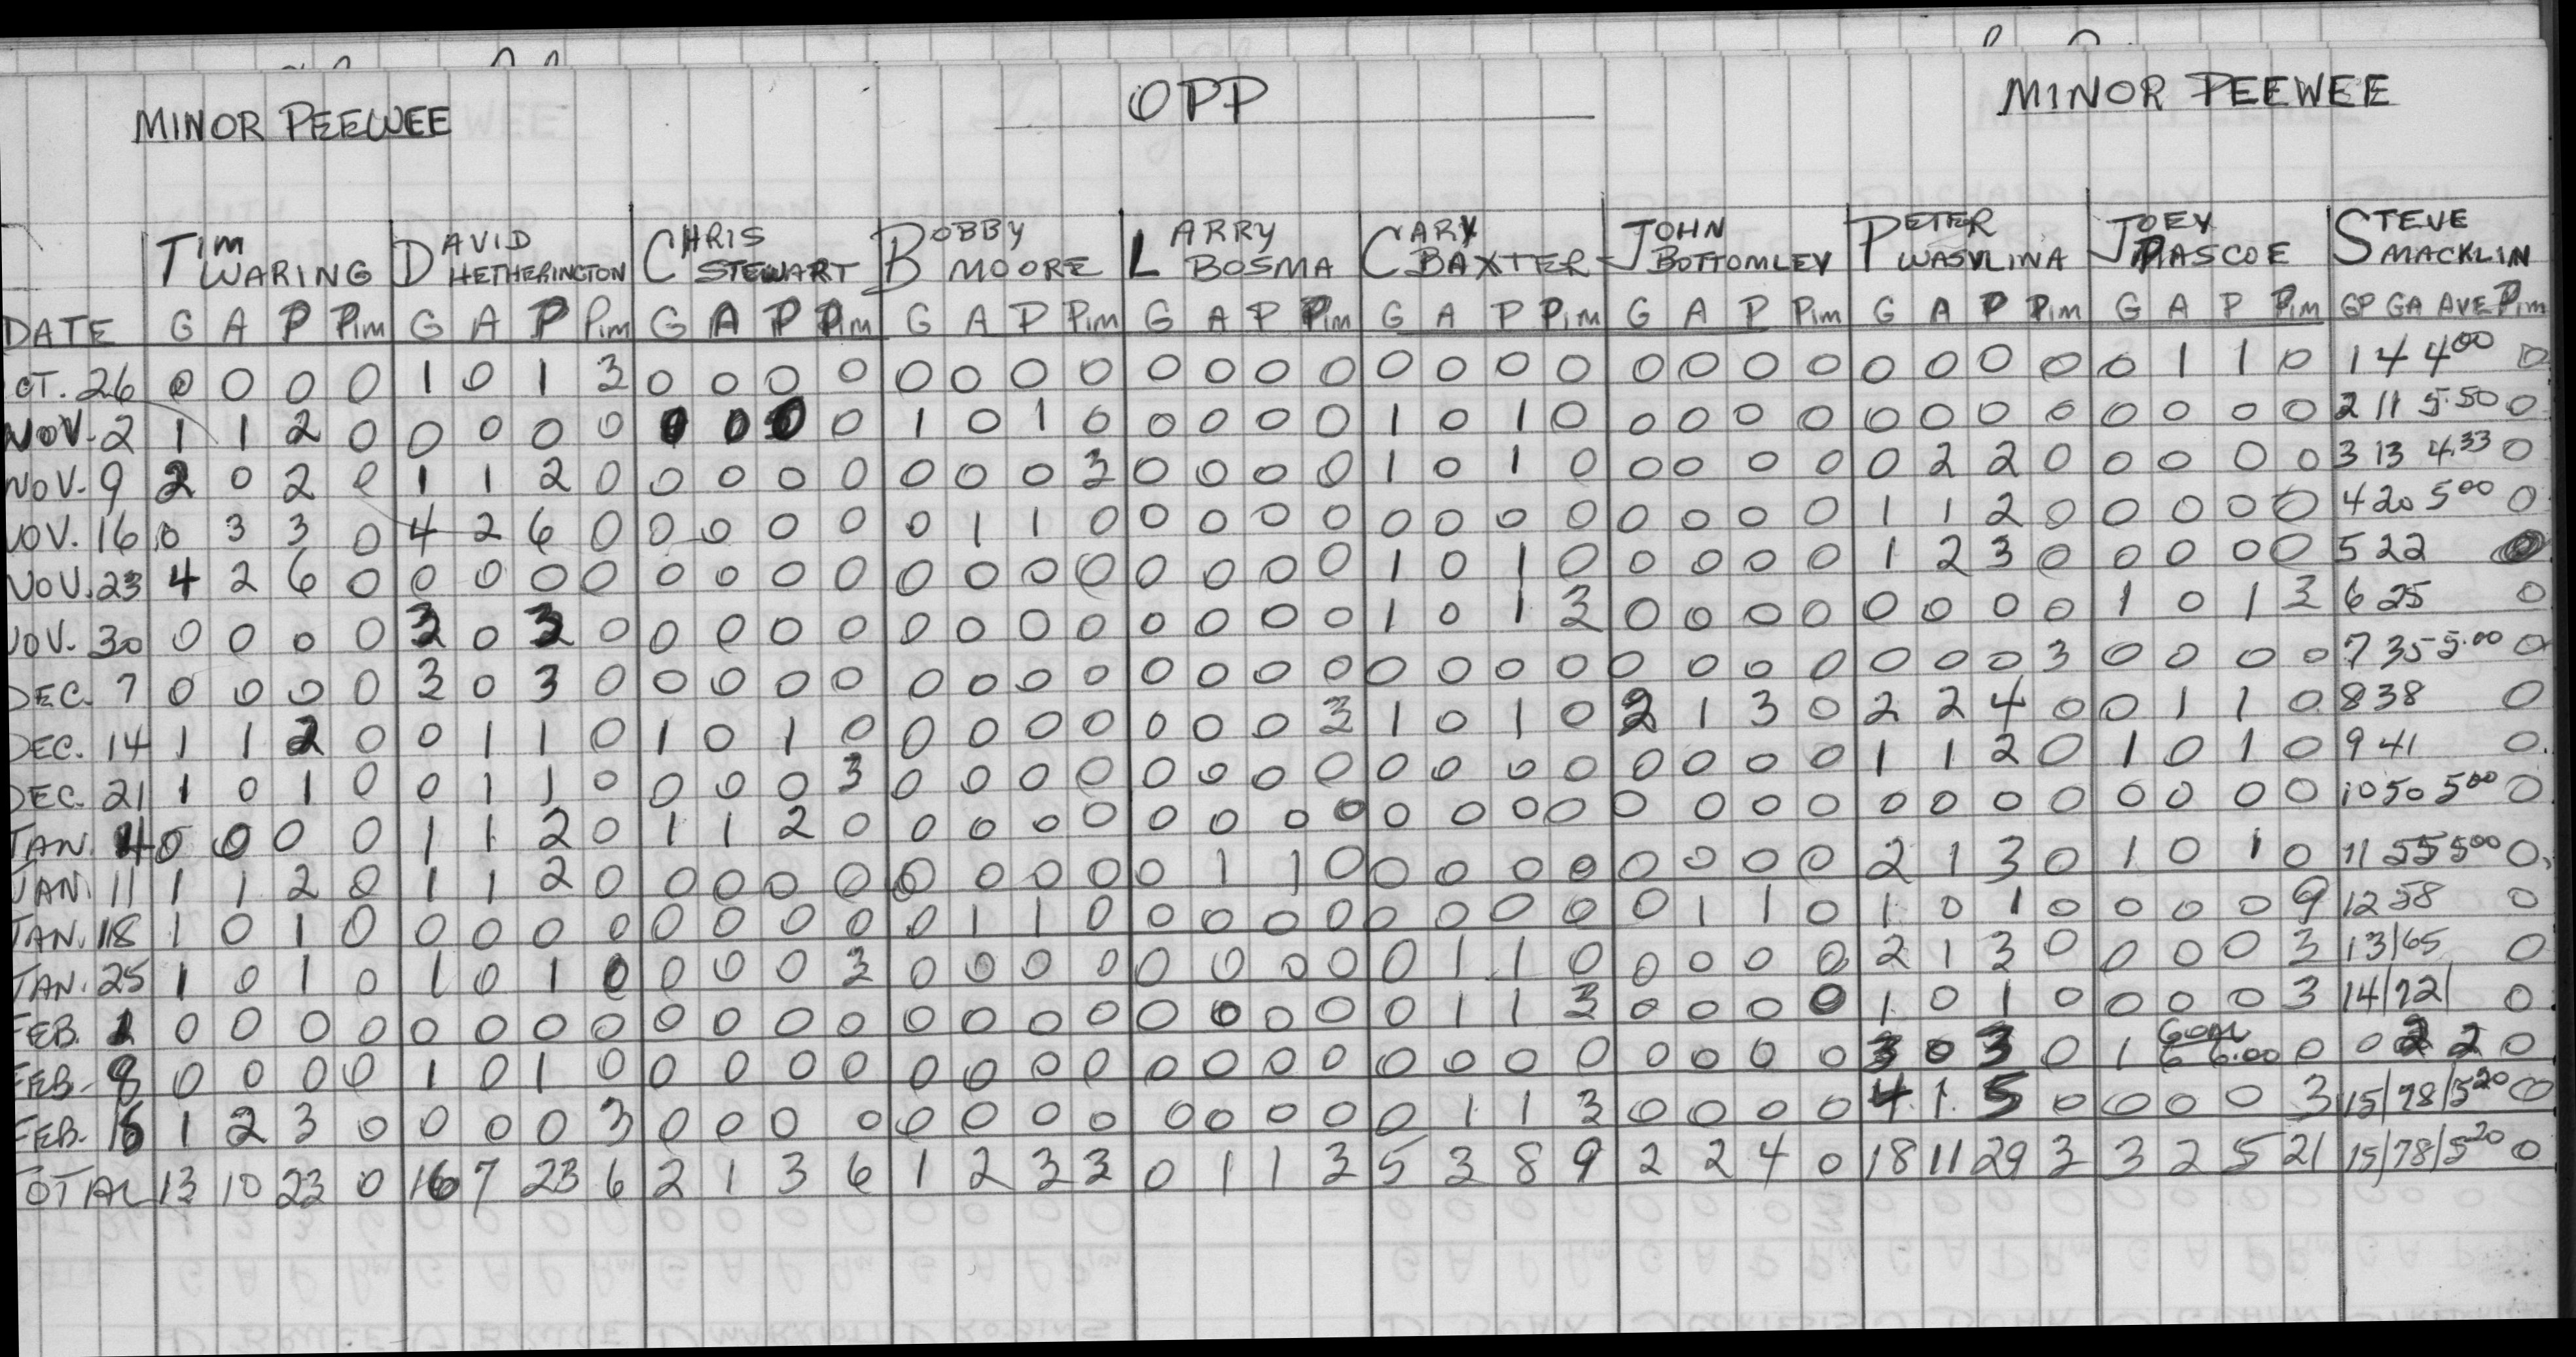 MINOR PEEWEE OPP MINOR PEEWEE
TIM WARING DAVID HETHERINGTON CHRIS STEWART BOBBY MOORE LARRY BOSMA CARY BAXTER JOHN BOTTOMLEY PETER WASYLINA JOEY PASCOE STEVE MACKLIN
DATE G A P Pim G A P Pim G A P Pim G A P Pim G A P Pim G A P Pim G A P Pim G A P Pim G A P Pim GP GA AVE Pim
OCT. 26 0 0 0 0 1 0 1 3 0 0 0 0 0 0 0 0 0 0 0 0 0 0 0 0 0 0 0 0 0 0 0 0 0 1 1 0 1 4 4.00 0
NOV. 2 1 1 2 0 0 0 0 0 0 0 0 0 1 0 1 0 0 0 0 0 1 0 1 0 0 0 0 0 0 0 0 0 0 0 0 0 2 11 5.50 0
NOV. 9 2 0 2 0 1 1 2 0 0 0 0 0 0 0 0 3 0 0 0 0 1 0 1 0 0 0 0 0 0 2 2 0 0 0 0 0 3 13 4.33 0
NOV. 16 0 3 3 0 4 2 6 0 0 0 0 0 0 1 1 0 0 0 0 0 0 0 0 0 0 0 0 0 1 1 2 0 0 0 0 0 4 20 5.00 0
NOV. 23 4 2 6 0 0 0 0 0 0 0 0 0 0 0 0 0 0 0 0 0 1 0 1 0 0 0 0 0 1 2 3 0 0 0 0 0 5 22 0
NOV. 30 0 0 0 0 3 0 3 0 0 0 0 0 0 0 0 0 0 0 0 0 1 0 1 3 0 0 0 0 0 0 0 0 1 0 1 3 6 25 0
DEC. 7 0 0 0 0 3 0 3 0 0 0 0 0 0 0 0 0 0 0 0 0 0 0 0 0 0 0 0 0 0 0 0 3 0 0 0 0 7 35 5.00 0
DEC. 14 1 1 2 0 0 1 1 0 1 0 1 0 0 0 0 0 0 0 0 3 1 0 1 0 2 1 3 0 2 2 4 0 0 1 1 0 8 38 0
DEC. 21 1 0 1 0 0 1 1 0 0 0 0 3 0 0 0 0 0 0 0 0 0 0 0 0 0 0 0 0 1 1 2 0 1 0 1 0 9 41 0
JAN. 4 0 0 0 0 1 1 2 0 1 1 2 0 0 0 0 0 0 0 0 0 0 0 0 0 0 0 0 0 0 0 0 0 0 0 0 0 10 50 5.00 0
JAN. 11 1 1 2 0 1 1 2 0 0 0 0 0 0 0 0 0 0 1 1 0 0 0 0 0 0 0 0 0 2 1 3 0 1 0 1 0 11 55 5.00 0
JAN. 18 1 0 1 0 0 0 0 0 0 0 0 0 0 1 1 0 0 0 0 0 0 0 0 0 0 1 1 0 1 0 1 0 0 0 0 9 12 58 0
JAN. 25 1 0 1 0 1 0 1 0 0 0 0 3 0 0 0 0 0 0 0 0 0 1 1 0 0 0 0 0 2 1 3 0 0 0 0 3 13|65 0
FEB. 1 0 0 0 0 0 0 0 0 0 0 0 0 0 0 0 0 0 0 0 0 0 1 1 3 0 0 0 0 1 0 1 0 0 0 0 3 14|72| 0
FEB. 8 0 0 0 0 1 0 1 0 0 0 0 0 0 0 0 0 0 0 0 0 0 0 0 0 0 0 0 0 3 0 3 0 1 GOAL 6 6.00 0 0 2 2 0
FEB. 15 1 2 3 0 0 0 0 3 0 0 0 0 0 0 0 0 0 0 0 0 0 1 1 3 0 0 0 0 4 1 5 0 0 0 0 3 15|78|5.20 0
TOTAL 13 10 23 0 16 7 23 6 2 1 3 6 1 2 3 3 0 1 1 3 5 3 8 9 2 2 4 0 18 11 29 3 3 2 5 21 15|78|5.20 0